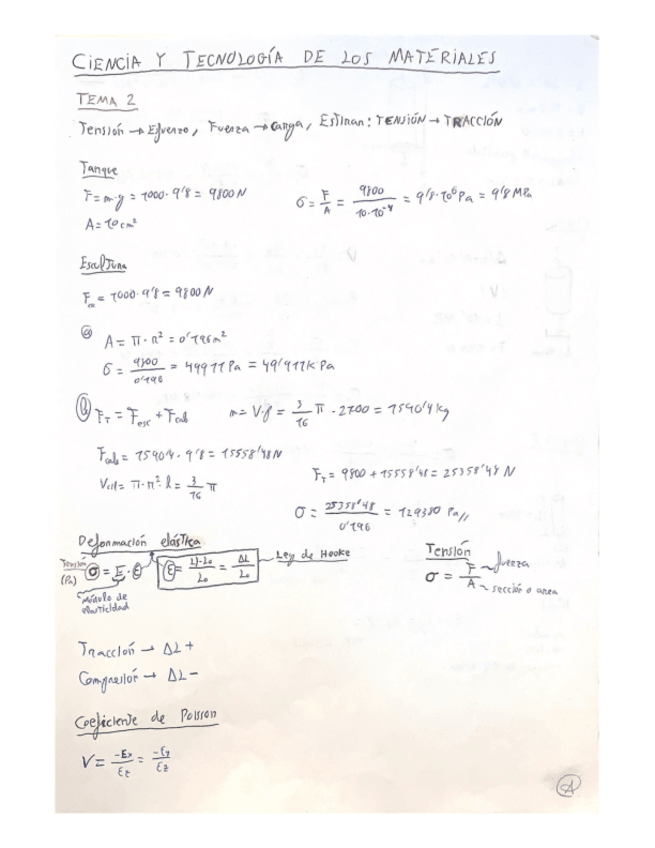 CIENCIA Y TECNOLOGÍA DE LOS MATERIALES
TEMA 2
Tensión → Esfuerzo, Fuerza → Carga, Estiran: TENSIÓN → TRACCIÓN
Tanque
F = m·g = 1000·9'8 = 9800 N
σ = F/A = 9800/10·10⁻⁴ = 9'8·10⁶ Pa = 9'8 MPa
A = 10 cm²
Escultura
Fₑₛ = 1000·9'8 = 9800 N
a
A = π·r² = 0'196 m²
σ = 9800/0'196 = 49911 Pa = 49'911 kPa
b F_T = F_esc + F_cab m = V·ρ = 3/16 π · 2700 = 1590'4 kg
F_cab = 1590'4 · 9'8 = 15558'48 N
V_cil = π·r²·l = 3/16 π
F_T = 9800 + 15558'48 = 25358'48 N
σ = 25358'48/0'196 = 129380 Pa//
Deformación elástica
Tensión (Pa) σ = E · ε
ε = L-L₀/L₀ = ΔL/L₀
Ley de Hooke
módulo de elasticidad
Tensión
σ = F/A
fuerza
sección o area
Tracción → ΔL +
Compresión → ΔL -
Coeficiente de Poisson
V = -εx/εz = -εy/εz